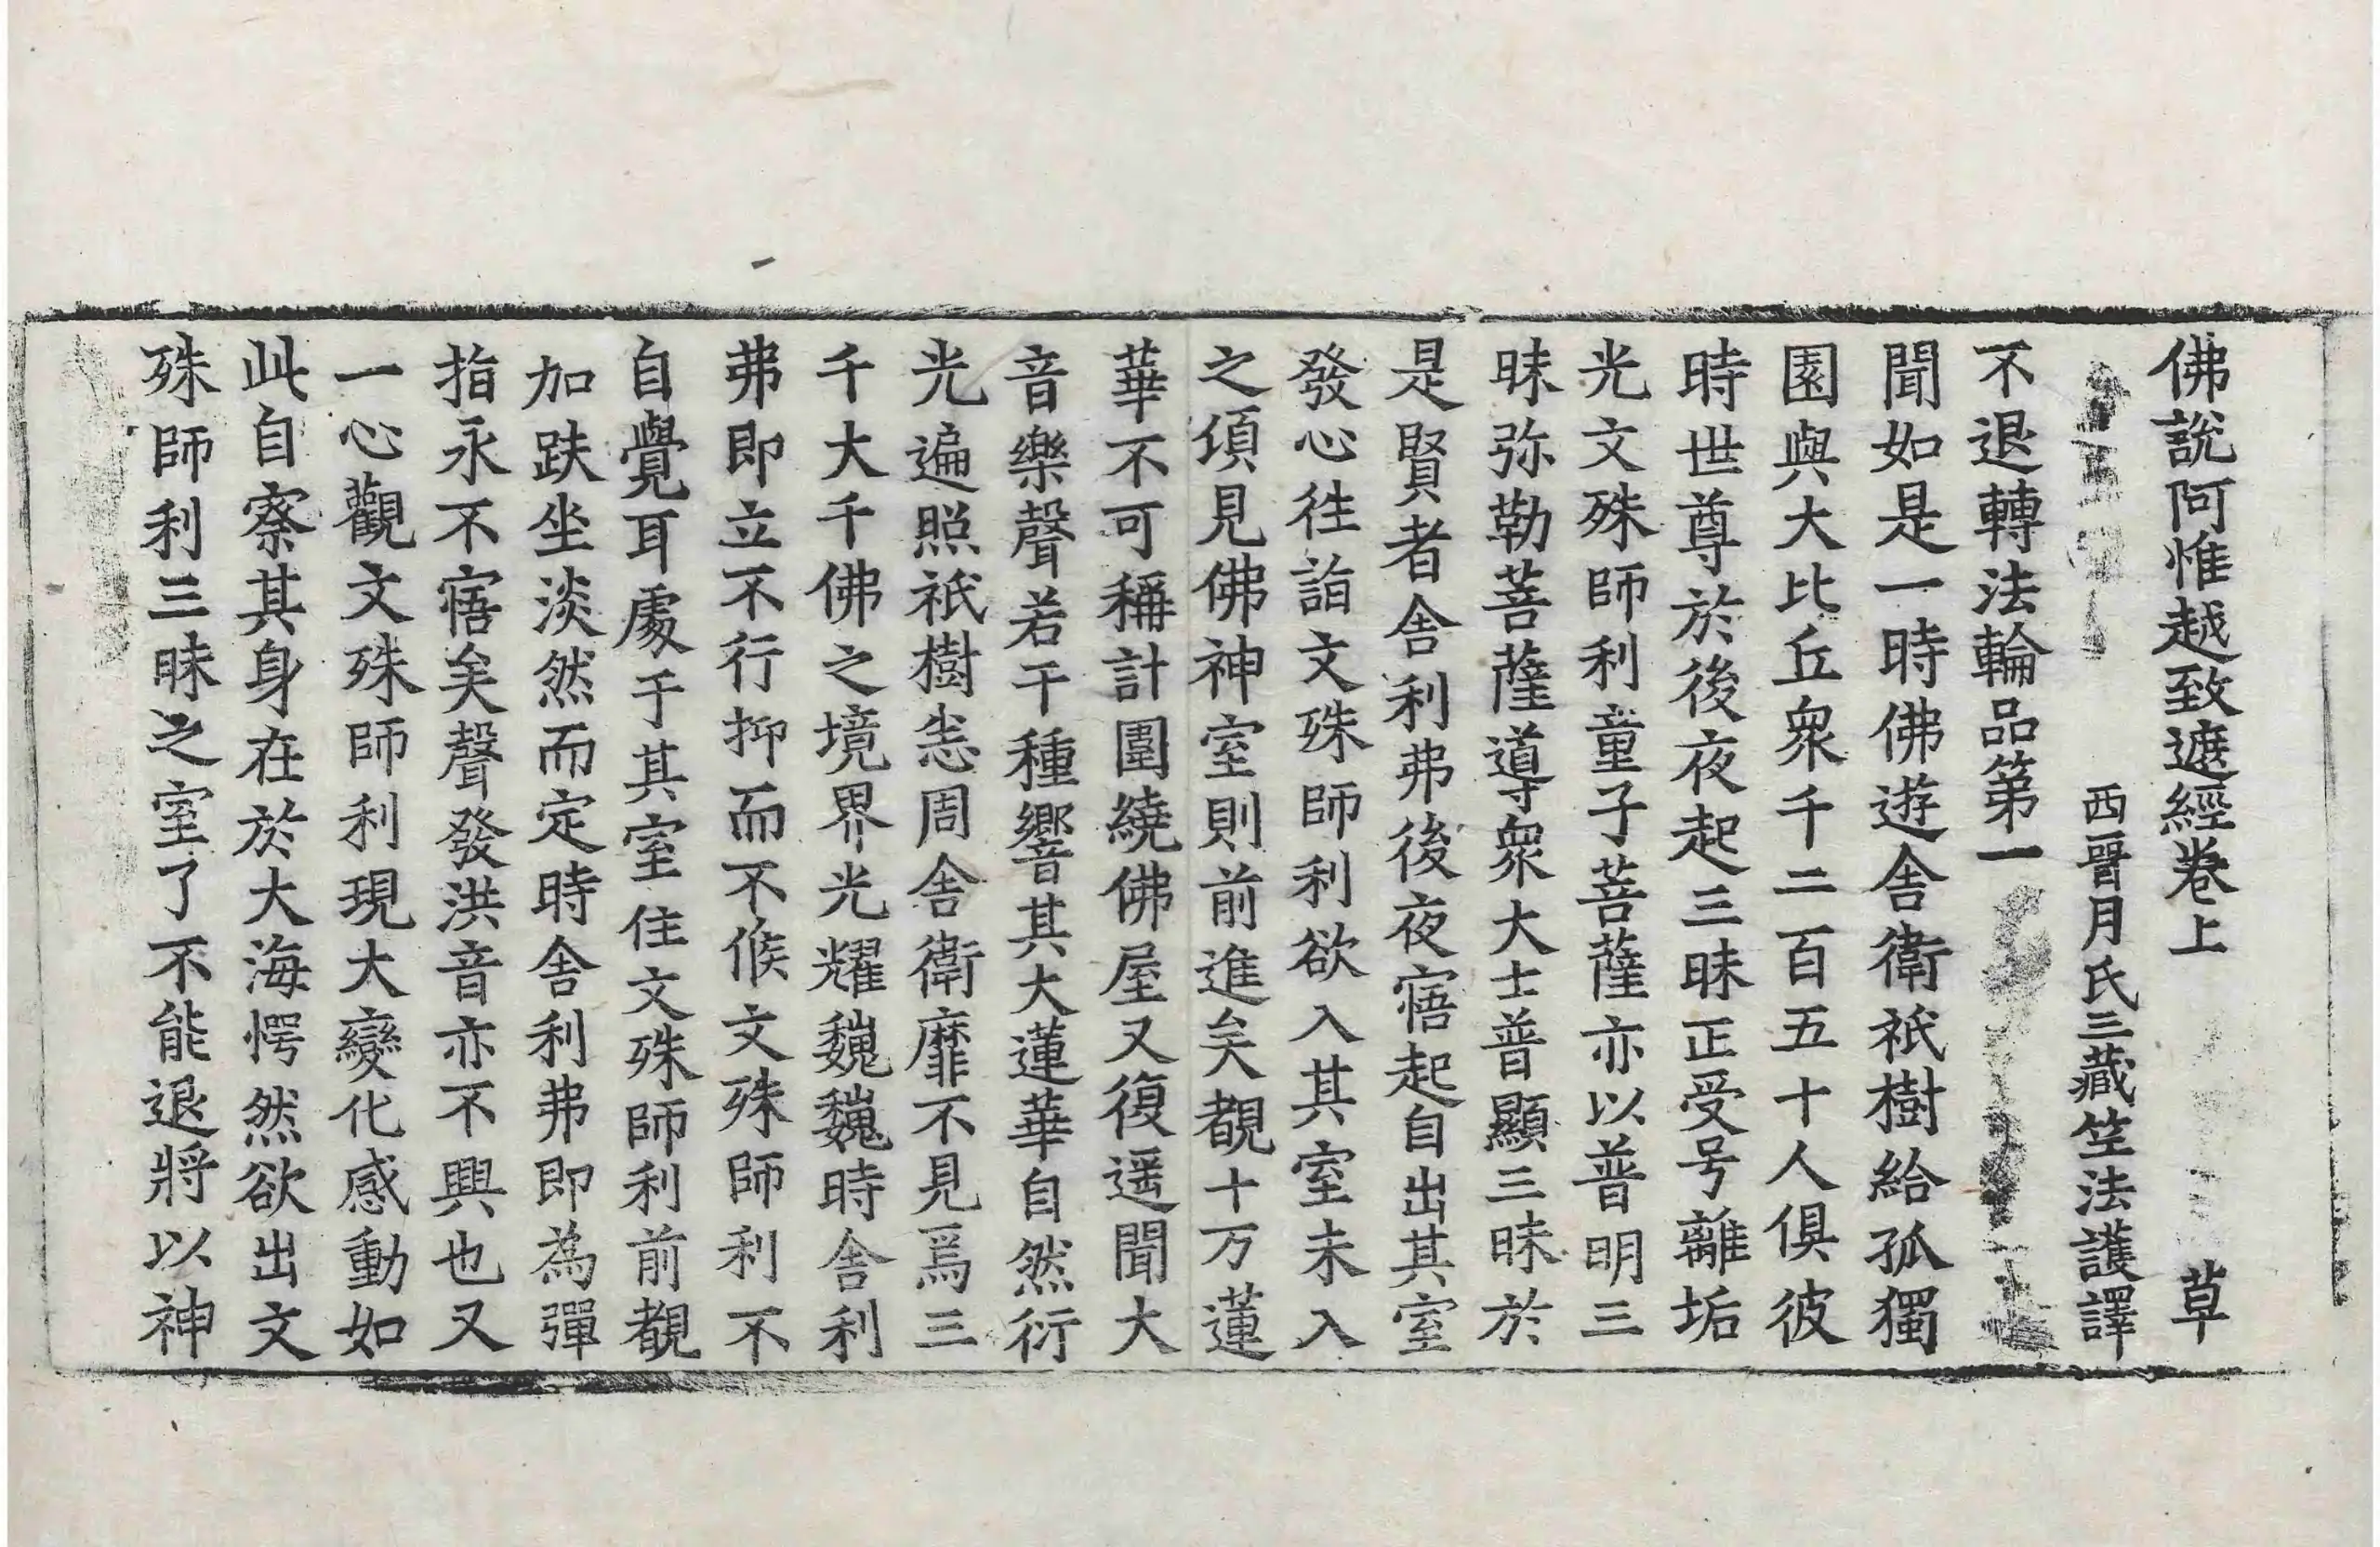 佛說阿惟越致遮經卷上 草
西晉月氏三藏竺法護譯
不退轉法輪品第一
聞如是一時佛遊舍衛祇樹給孤獨
園與大比丘衆千二百五十人俱彼
時世尊於後夜起三昧正受号離垢
光文殊師利童子菩薩亦以普明三
昧弥勒菩薩導衆大士普顯三昧於
是賢者舍利弗後夜寤起自出其室
發心往詣文殊師利欲入其室未入
之頃見佛神室則前進矣覩十万蓮
華不可稱計圍繞佛屋又復遥聞大
音樂聲若干種響其大蓮華自然衍
光遍照祇樹悉周舍衛靡不見焉三
千大千佛之境界光耀巍巍時舍利
弗即立不行抑而不候文殊師利不
自覺耳處于其室住文殊師利前覩
加趺坐淡然而定時舍利弗即為彈
指永不寤矣聲發洪音亦不興也又
一心觀文殊師利現大變化感動如
此自察其身在於大海愕然欲出文
殊師利三昧之室了不能退將以神